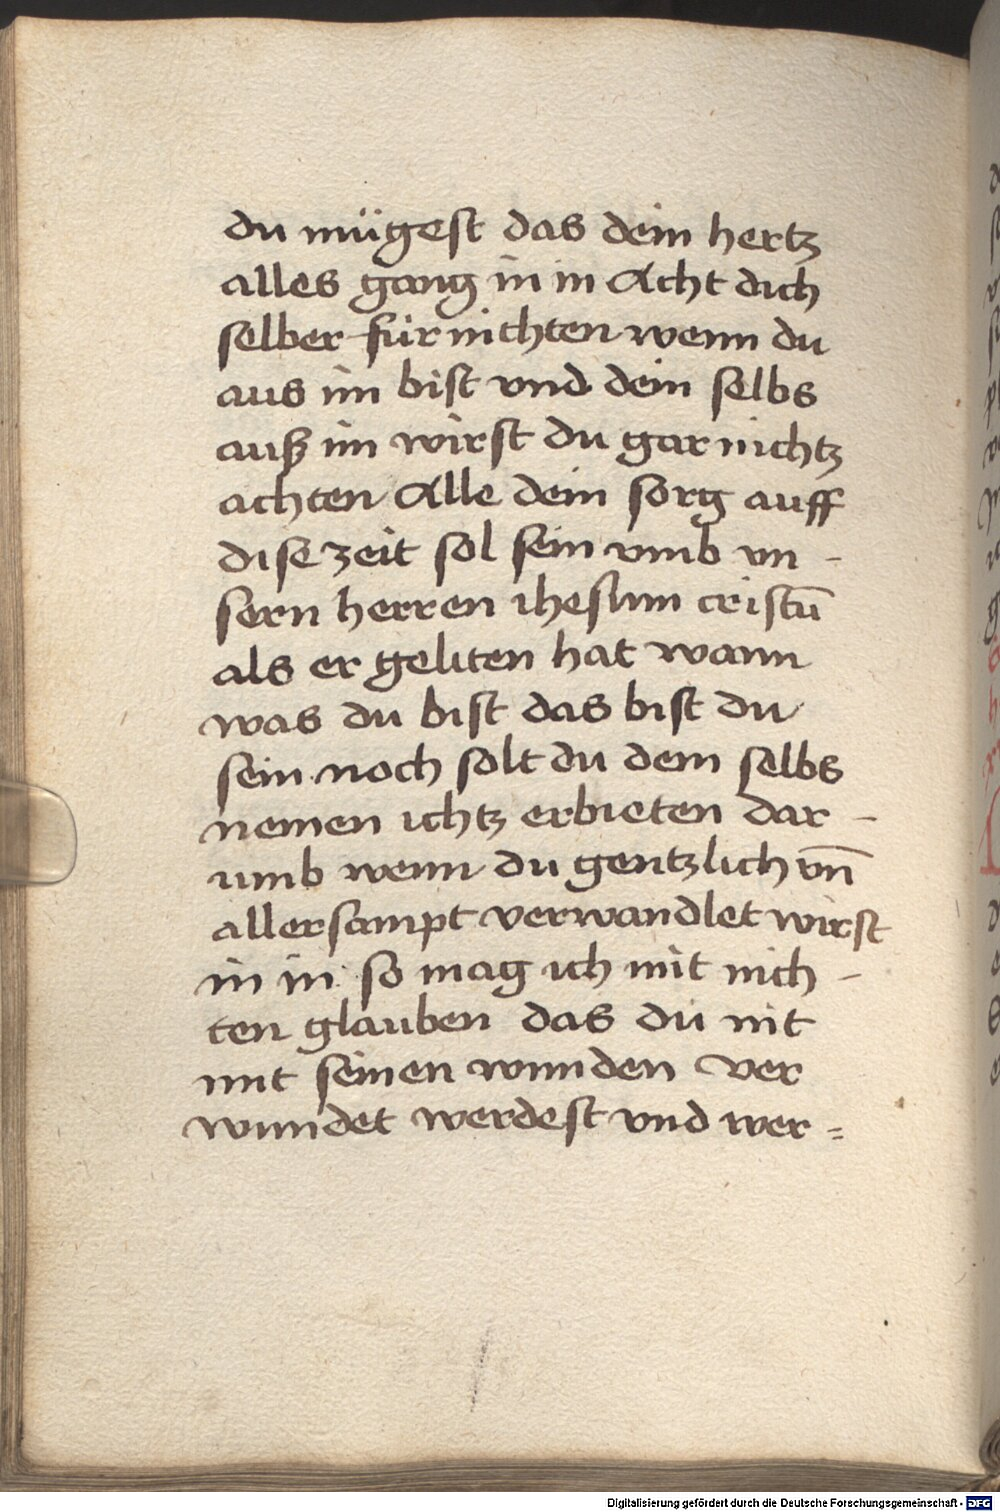 du mügest das dein hertz
alles gang in in Acht dich
selber für nichten wenn du
aus im bist vnd dein selbs
auß im wirst du gar nichtz
achten Alle dein sorg auff
dise zeit sol sein vmb vn -
sern herren ihesum cristū
als er geliten hat wann
was du bist das bist du
sein noch solt du dem selbs
nemen ichtz erbieten dar -
umb wenn du gentzlich vn̄
allersampt verwandlet wirst
in in so mag ich mit nich -
ten glauben das du nit
mit seinen wunden ver
wundet werdest vnd wer =
Digitalisierung gefördert durch die Deutsche Forschungsgemeinschaft - DFG